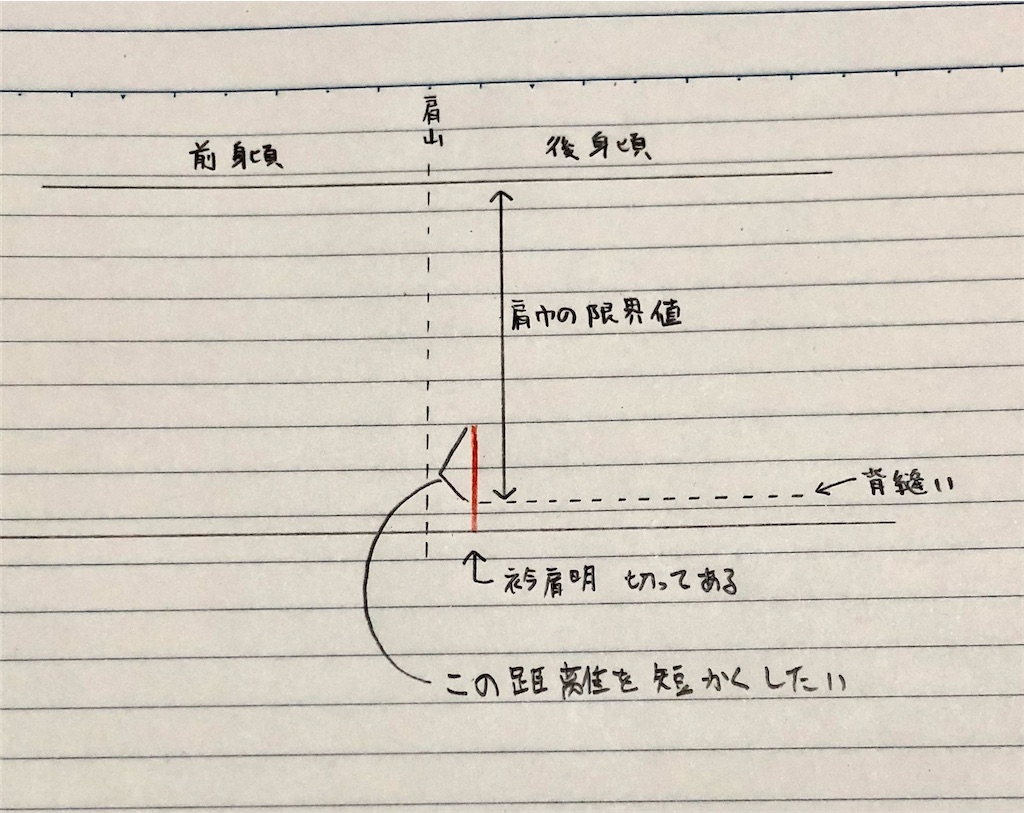 肩山
前身頃
後身頃
肩巾の限界値
背縫い
衿肩明 切ってある
この距離を短かくしたい